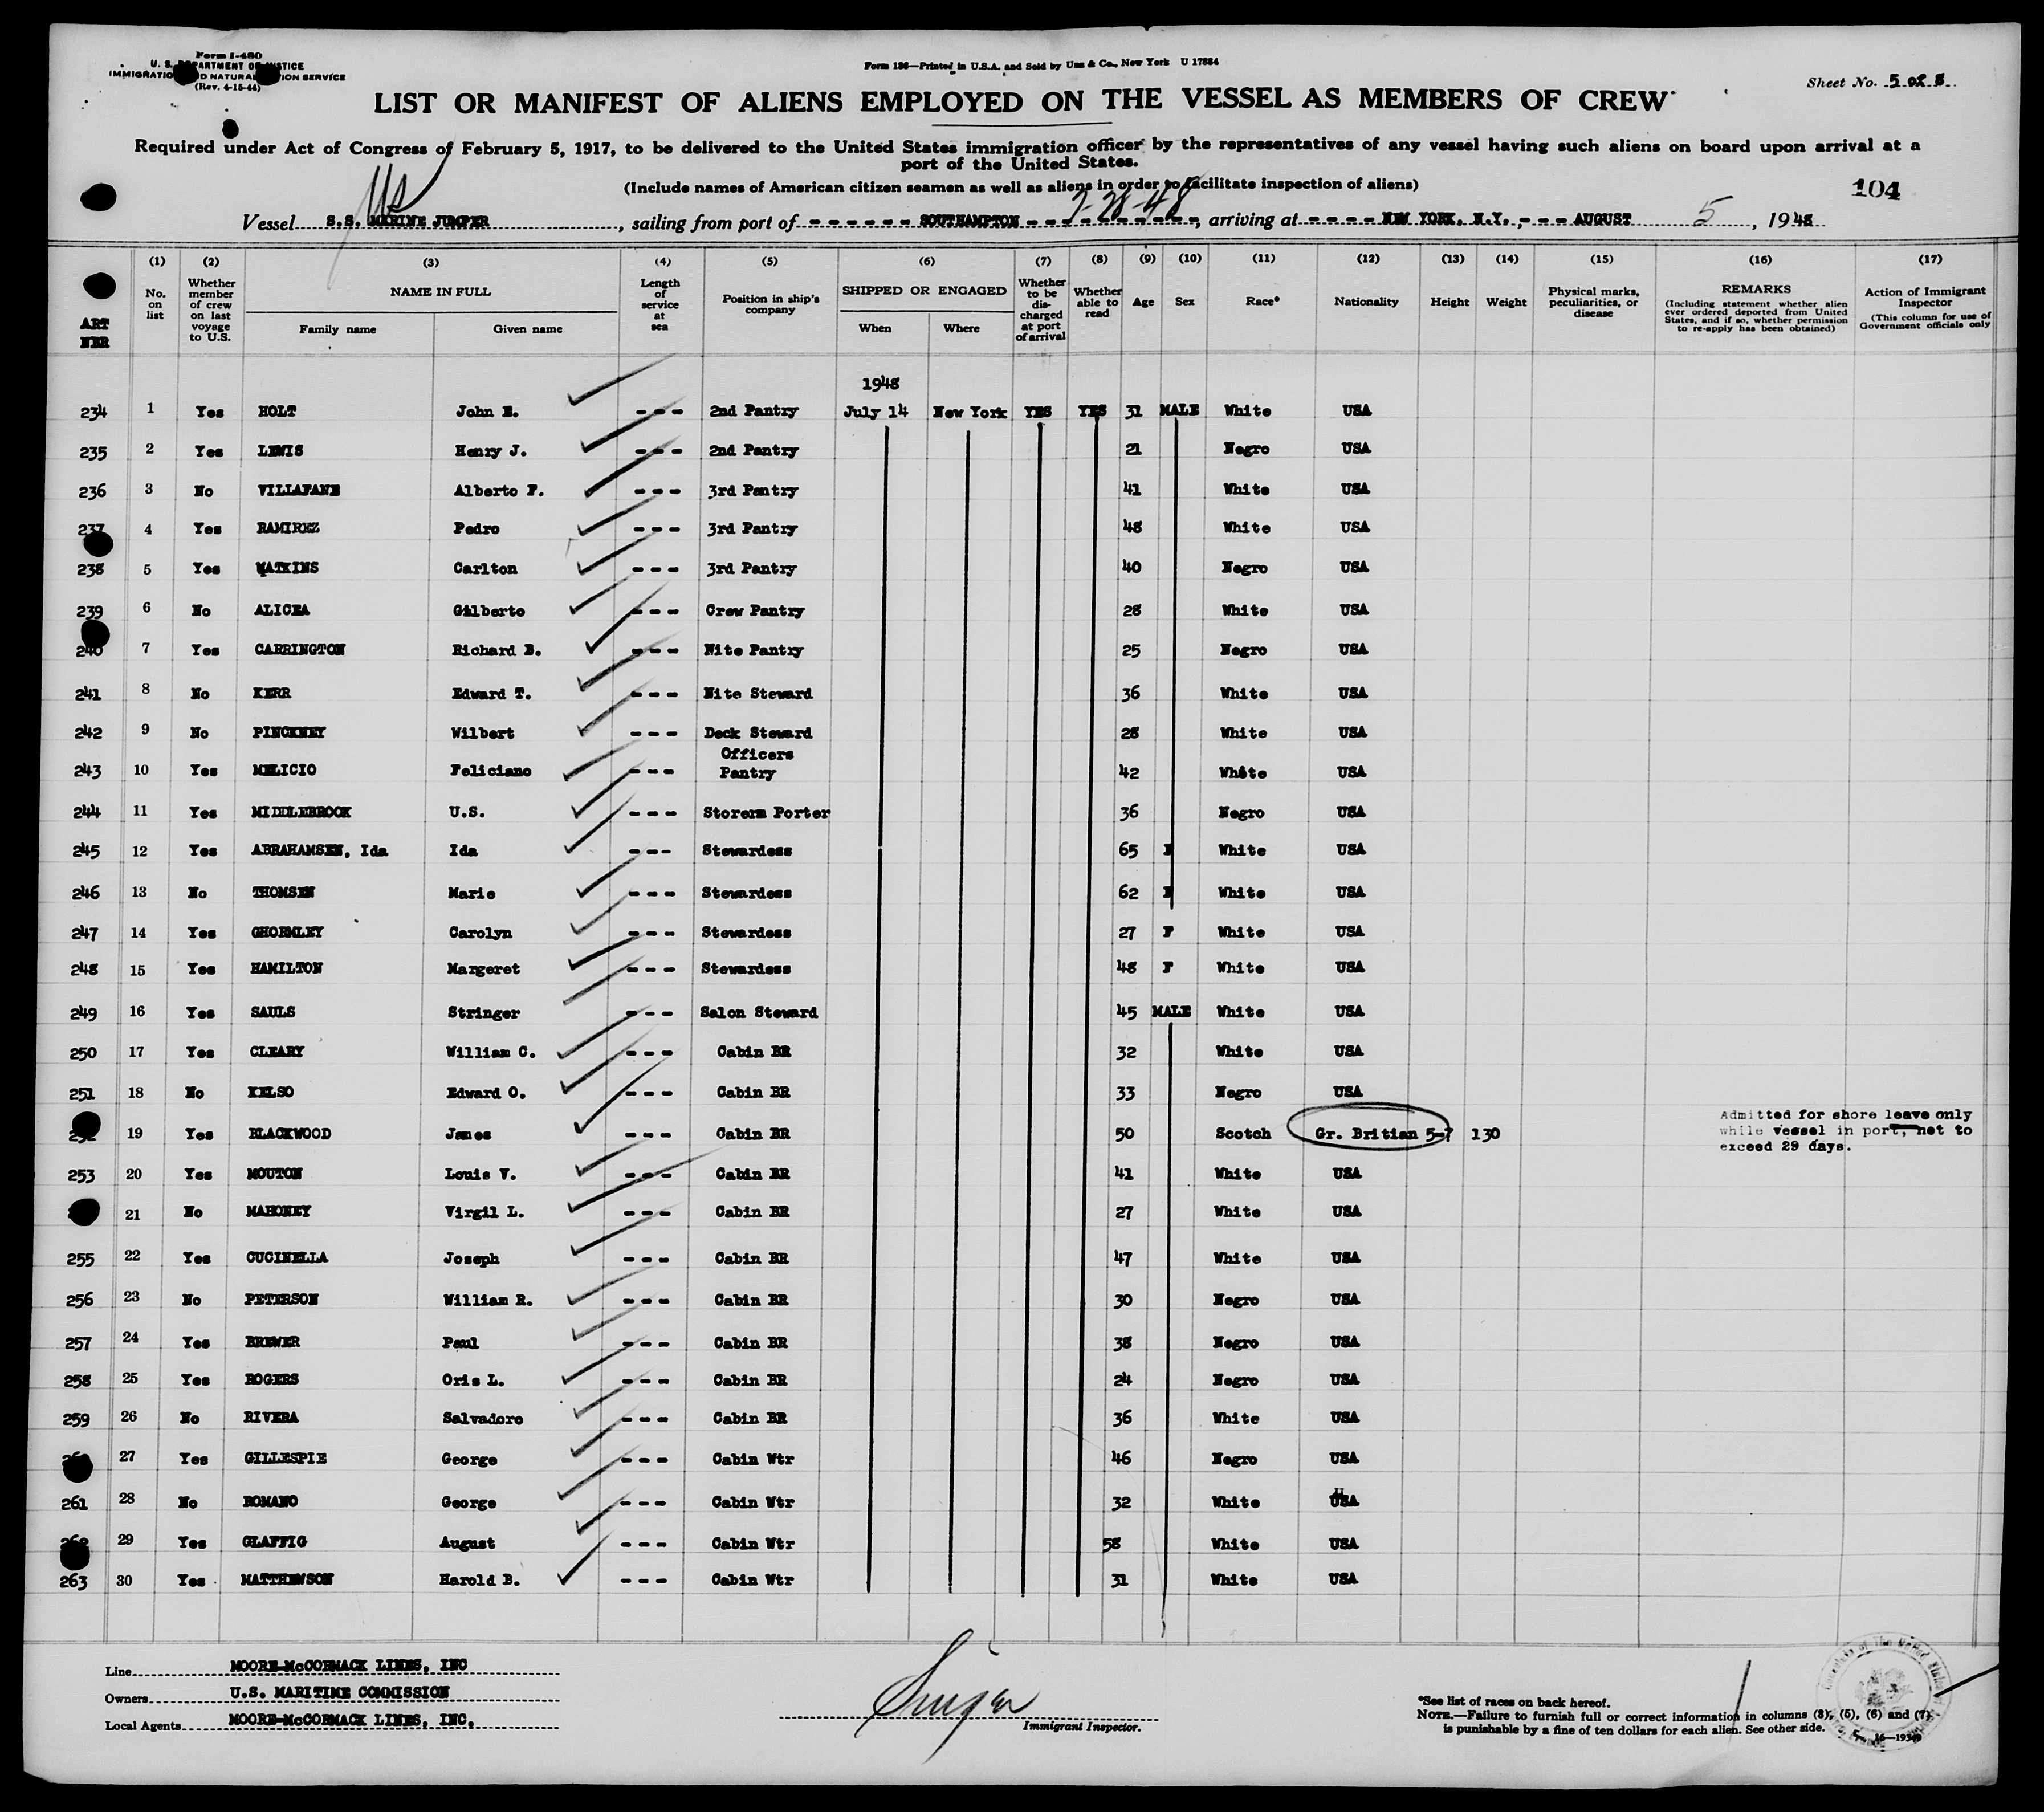 Form I-480
U. S. DEPARTMENT OF JUSTICE
IMMIGRATION AND NATURALIZATION SERVICE
(Rev. 4-15-44)
Form 186—Printed in U.S.A. and Sold by Unz & Co., New York U 17884
Sheet No. 5 of 8
LIST OR MANIFEST OF ALIENS EMPLOYED ON THE VESSEL AS MEMBERS OF CREW
Required under Act of Congress of February 5, 1917, to be delivered to the United States immigration officer by the representatives of any vessel having such aliens on board upon arrival at a
port of the United States.
(Include names of American citizen seamen as well as aliens in order to facilitate inspection of aliens)
104
US
7-28-48
Vessel S.S. MARINE JUMPER, sailing from port of - - - - - - SOUTHAMPTON - - - - - - - - - -, arriving at - - - - NEW YORK, N.Y., - - - AUGUST 5, 1948
ART NBR
(1) No. on list
(2) Whether member of crew on last voyage to U.S.
(3) NAME IN FULL Family name Given name
(4) Length of service at sea
(5) Position in ship's company
(6) SHIPPED OR ENGAGED When Where
(7) Whether to be discharged at port of arrival
(8) Whether able to read
(9) Age
(10) Sex
(11) Race*
(12) Nationality
(13) Height
(14) Weight
(15) Physical marks, peculiarities, or disease
(16) REMARKS (Including statement whether alien ever ordered deported from United States, and if so, whether permission to re-apply has been obtained)
(17) Action of Immigrant Inspector (This column for use of Government officials only
1948
234 1 Yes HOLT John E. - - - 2nd Pantry July 14 New York YES YES 31 MALE White USA
235 2 Yes LEWIS Henry J. - - - 2nd Pantry 21 Negro USA
236 3 No VILLAFANE Alberto F. - - - 3rd Pantry 41 White USA
237 4 Yes RAMIREZ Pedro - - - 3rd Pantry 48 White USA
238 5 Yes WATKINS Carlton - - - 3rd Pantry 40 Negro USA
239 6 No ALICEA Gilberto - - - Crew Pantry 28 White USA
240 7 Yes CARRINGTON Richard B. - - - Nite Pantry 25 Negro USA
241 8 No KERR Edward T. - - - Nite Steward 36 White USA
242 9 No PINCKNEY Wilbert - - - Deck Steward 28 White USA
243 10 Yes MELICIO Feliciano - - - Officers Pantry 42 White USA
244 11 Yes MIDDLEBROOK U.S. - - - Storerm Porter 36 Negro USA
245 12 Yes ABRAHAMSEN, Ida Ida - - - Stewardess 65 F White USA
246 13 No THOMSEN Marie - - - Stewardess 62 F White USA
247 14 Yes GHORMLEY Carolyn - - - Stewardess 27 F White USA
248 15 Yes HAMILTON Margeret - - - Stewardess 48 F White USA
249 16 Yes SAULS Stringer - - - Salon Steward 45 MALE White USA
250 17 Yes CLEARY William C. - - - Cabin BR 32 White USA
251 18 No KELSO Edward O. - - - Cabin BR 33 Negro USA
252 19 Yes BLACKWOOD James - - - Cabin BR 50 Scotch Gr. Britian 5-7 130 Admitted for shore leave only while vessel in port, not to exceed 29 days.
253 20 Yes MOUTON Louis V. - - - Cabin BR 41 White USA
21 No MAHONEY Virgil L. - - - Cabin BR 27 White USA
255 22 Yes CUCINELLA Joseph - - - Cabin BR 47 White USA
256 23 No PETERSON William R. - - - Cabin BR 30 Negro USA
257 24 Yes BREWER Paul - - - Cabin BR 38 Negro USA
258 25 Yes ROGERS Oris L. - - - Cabin BR 24 Negro USA
259 26 No RIVERA Salvadore - - - Cabin BR 36 White USA
260 27 Yes GILLESPIE George - - - Cabin Wtr 46 Negro USA
261 28 No ROMANO George - - - Cabin Wtr 32 White USA
262 29 Yes GLAFFIG August - - - Cabin Wtr 58 White USA
263 30 Yes MATTHEWSON Harold B. - - - Cabin Wtr 31 White USA
Line MOORE-McCORMACK LINES, INC
Owners U.S. MARITIME COMMISSION
Local Agents MOORE-McCORMACK LINES, INC.
Immigrant Inspector.
*See list of races on back hereof.
NOTE.—Failure to furnish full or correct information in columns (3), (5), (6) and (7)
is punishable by a fine of ten dollars for each alien. See other side.